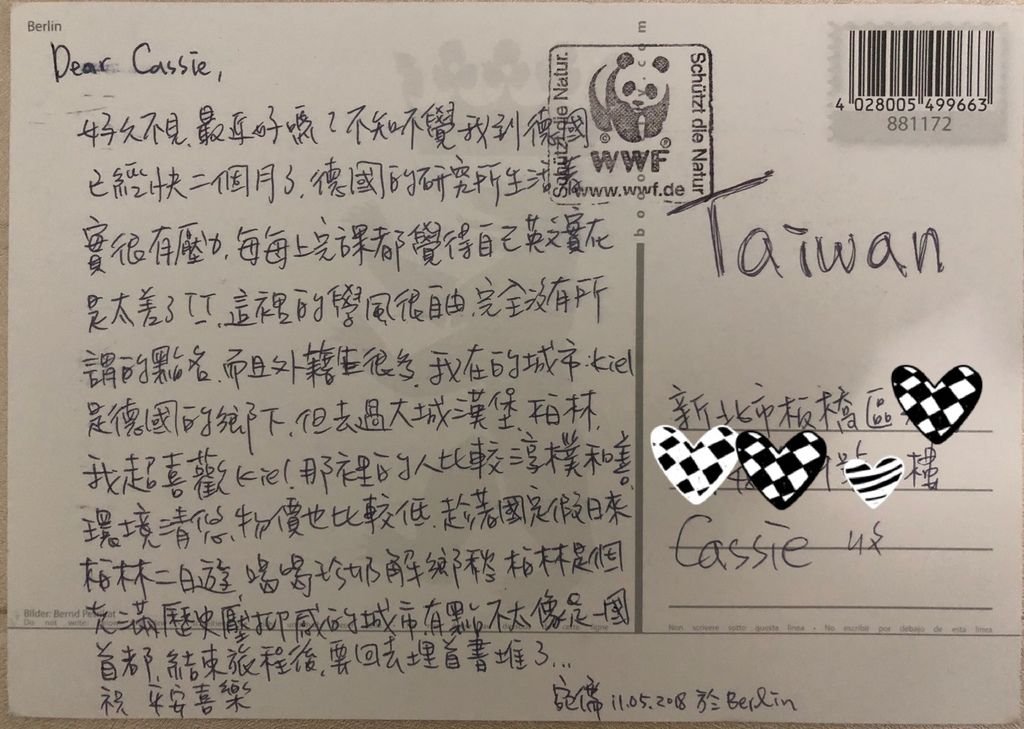 Berlin
Dear Cassie,
好久不見,最近好嗎?不知不覺我到德國
已經快二個月了,德國的研究所生活著
實很有壓力,每每上完課都覺得自己英文實在
是太差了TT,這裡的學風很自由,完全沒有所
謂的點名,而且外籍生很多,我在的城市Kiel
是德國的鄉下,但去過大城漢堡,柏林,
我超喜歡Kiel!那裡的人比較淳樸和善,
環境清悠,物價也比較低,趁著國定假日來
柏林二日遊,喝喝珍奶解鄉愁,柏林是個
充滿歷史壓抑感的城市,有點不太像是一國
首都,結束旅程後,要回去埋首書堆了...
祝 平安喜樂
11.05.2018 於Berlin
Schützt die Natur.
WWF
www.wwf.de
Schützt die Natur
4 028005 499663
881172
Taiwan
新北市板橋區
樓
Cassie 收
Bilder: Bernd
Non scrivere sotto questa linea • No escribir por debajo de esta linea